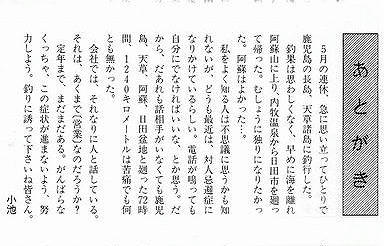 あとがき
5月の連休、急に思い立ってひとりで
鹿児島の長島、天草諸島に釣行した。
釣果は思わしくなく、早めに海を離れ
阿蘇山に上り、内牧温泉から日田市を廻っ
て帰った。むしょうに独りになりたかっ
た。阿蘇はよかった…。
私をよく知る人は不思議に思うかも知
れないが、どうも最近は、対人忌避症に
なりかけているらしい。電話が鳴っても
自分にでなければいいな、とか思う。だ
から、だあれも話相手がいなくても鹿児
島、天草、阿蘇、日田盆地と廻った72時
間、1240キロメートルは苦痛でも何
とも無かった。
会社では、それなりに人と話している。
それは、あくまで〈営業〉なのだろうか?
定年まで、まだまだある。がんばらな
くっちゃ、この症状が進まないよう、努
力しよう。釣りに誘って下さいね皆さん。
小池